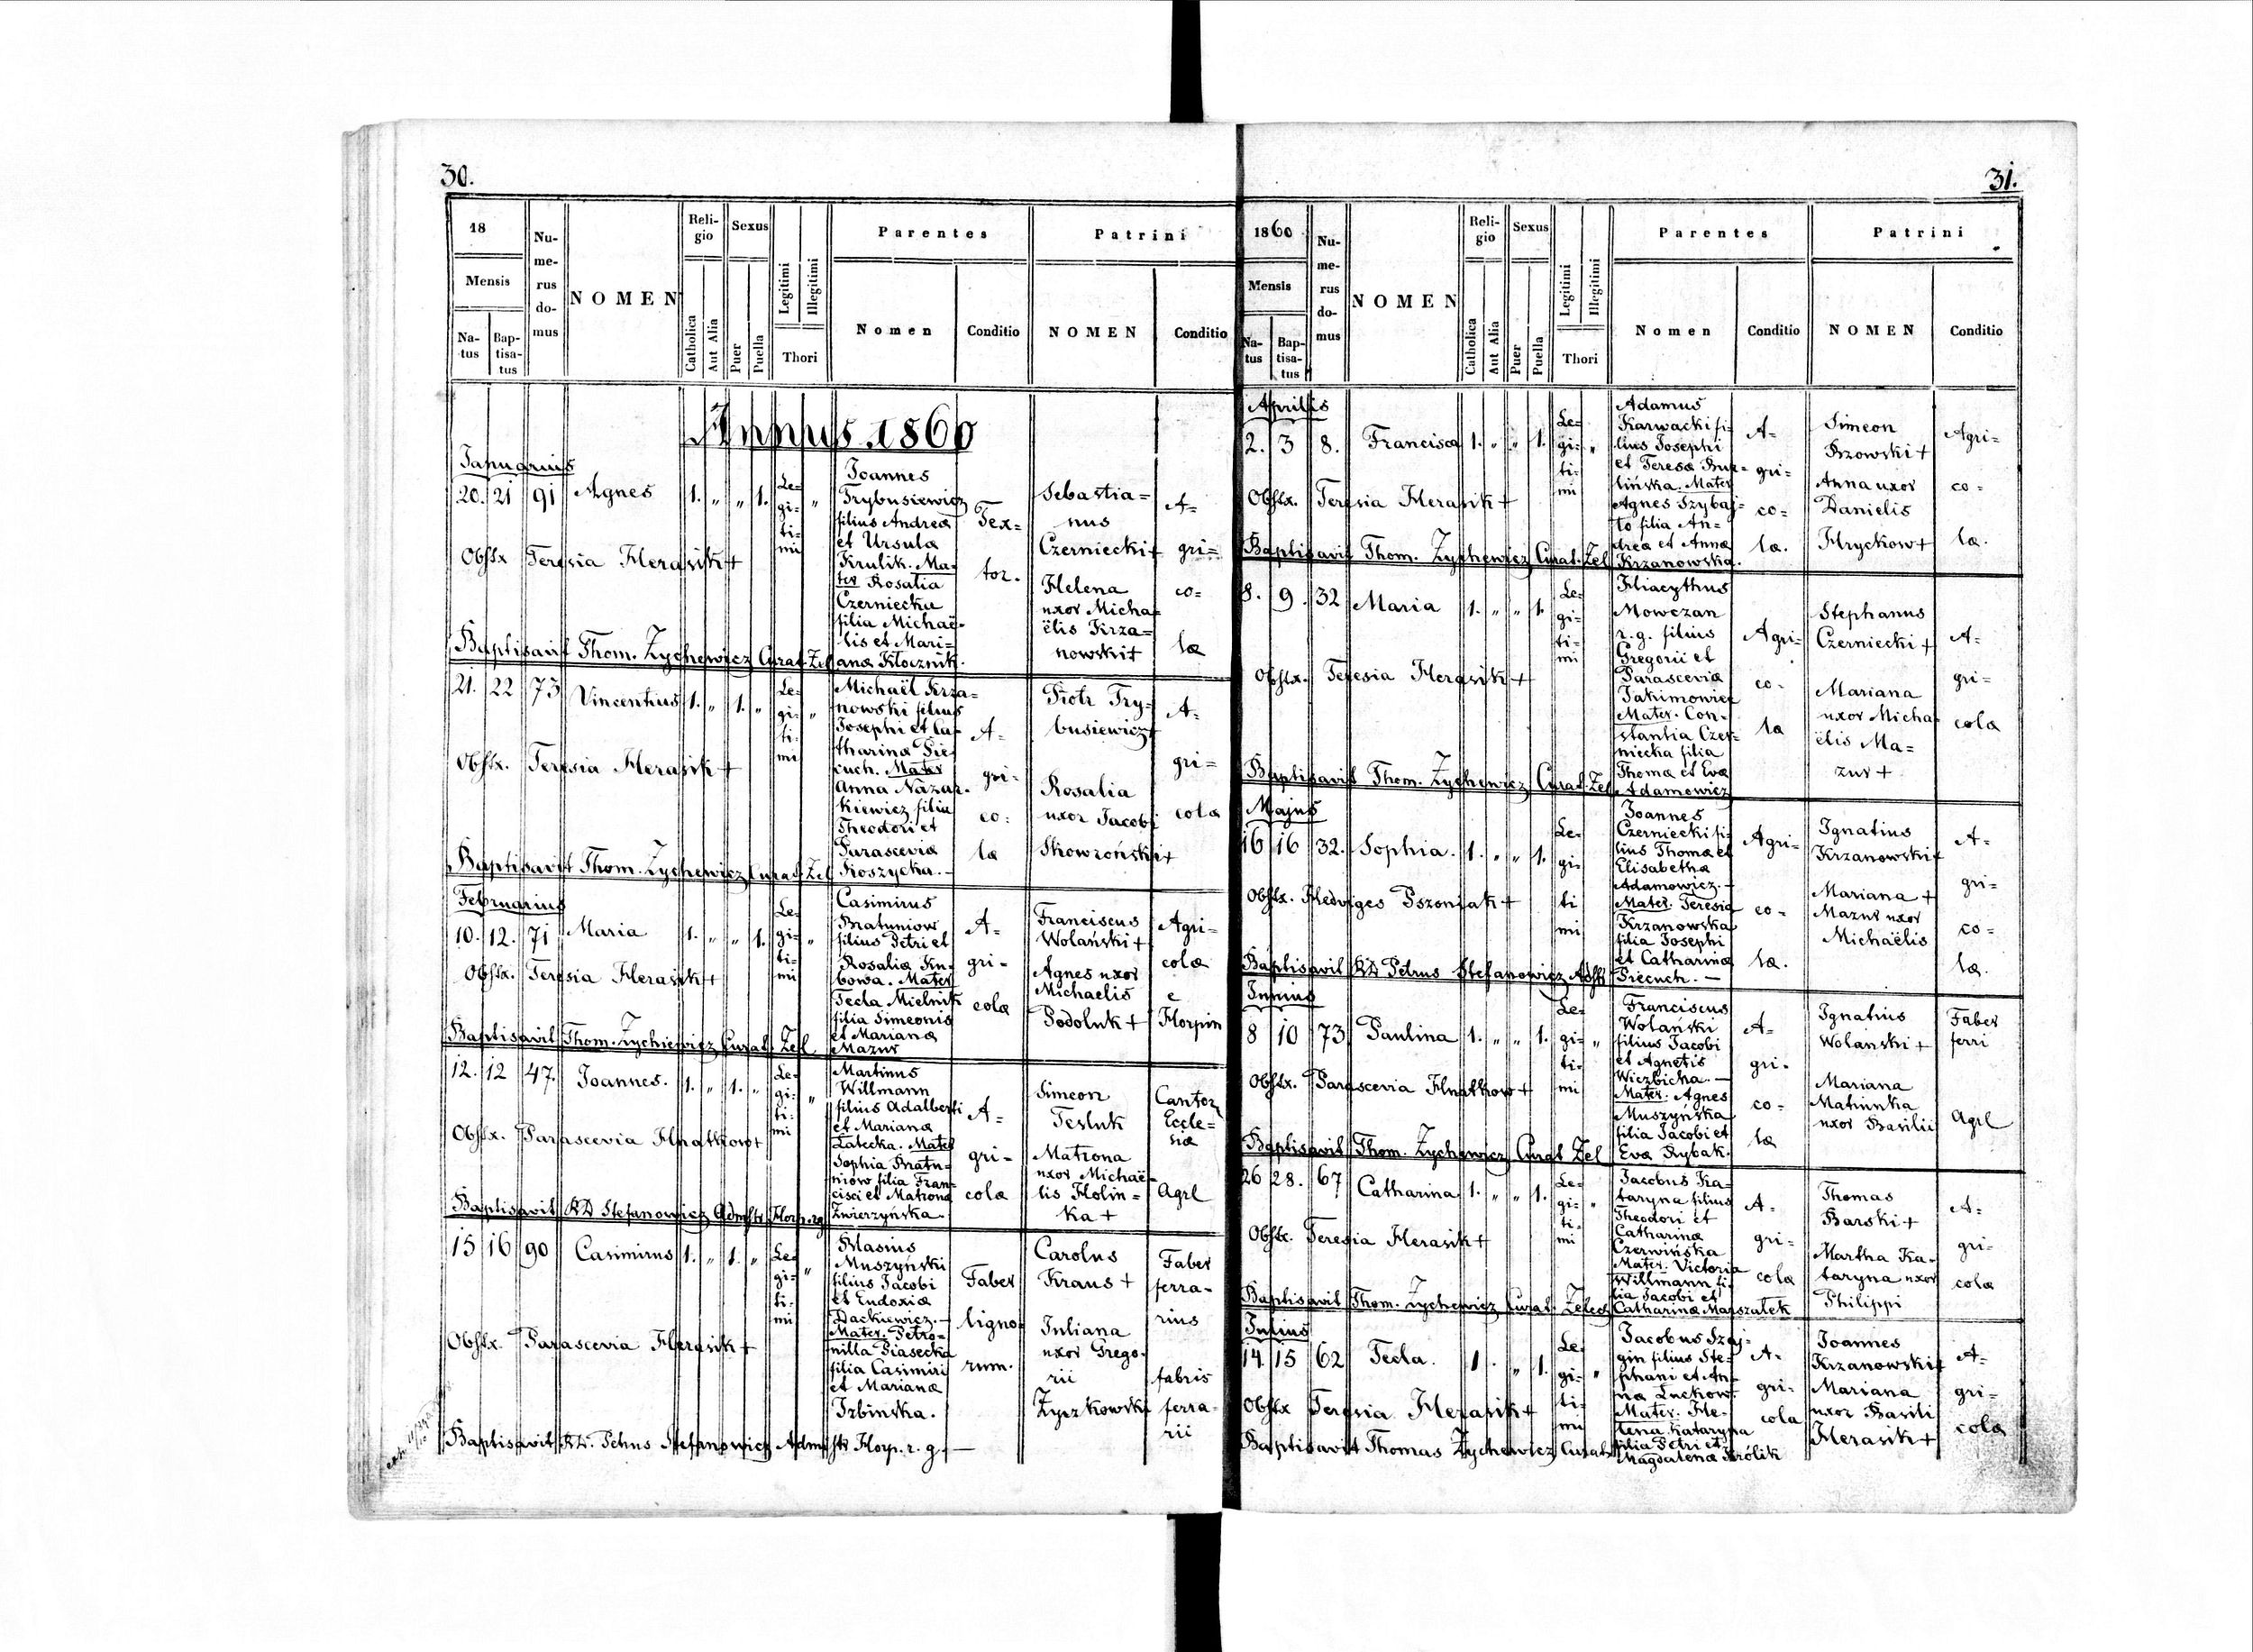 30.
18
Mensis
Na-
tus
Bap-
tisa-
tus
Nu-
me-
rus
do-
mus
NOMEN
Reli-
gio
Catholica
Aut Alia
Sexus
Puer
Puella
Legitimi
Illegitimi
Thori
Parentes
Nomen
Conditio
Patrini
NOMEN
Conditio
Annus 1860
Januarius
20. 21 91 Agnes 1. „ „ 1.
Le-
gi-
ti-
mi
„
Joannes
Trybusiewicz
filius Andreæ
et Ursula
Krulik. Ma-
ter Rosalia
Czerniecka
filia Michaë-
lis et Mari-
anæ Kłocznik.
Tex-
tor.
Sebastia-
nus
Czerniecki+
Helena
uxor Micha-
ëlis Krza-
nowski+
A-
gri-
co-
læ
Obstx Teresia Herasik+
Baptisavit Thom. Zychewicz Curat. Zel
21. 22 73 Vincentius 1. „ 1. „
Le-
gi-
ti-
mi
„
Michaël Krza-
nowski filius
Josephi et Ca-
tharinæ Pie-
cuch. Mater
Anna Nazar-
kiewicz filia
Theodori et
Parasceviæ
Koszycka.
A-
gri-
co-
læ
Piotr Try-
busiewicz+
Rosalia
uxor Jacobi
Skowroński+
A-
gri-
colæ
Obstx. Teresia Herasik+
Baptisavit Thom. Zychewicz Curat. Zel
Februarius
10. 12. 71 Maria 1. „ „ 1.
Le-
gi-
ti-
mi
„
Casimirus
Bratuniow
filius Petri et
Rosaliæ Ku-
bowa. Mater
Tecla Mielnik
filia Simeonis
et Marianæ
Mazur
A-
gri-
colæ
Franciscus
Wolański+
Agnes uxor
Michaelis
Podoluk+
Agri-
colæ
e
Horpin
Obstx. Teresia Herasik+
Baptisavit Thom. Zychiewicz Curat. Zel
12. 12 47. Joannes. 1. „ 1. „
Le-
gi-
ti-
mi
„
Martinus
Willmann
filius Adalberti
et Marianæ
Zatecka. Mater
Sophia Bratu-
niow filia Fran-
cisci et Matronæ
Zwierzyńska.
A-
gri-
colæ
Simeon
Tesluk
Matrona
uxor Michaë-
lis Holin-
ka+
Cantor
Eccle-
siæ
Agrl
Obstx. Parascevia Hnatkow+
Baptisavit RD Stefanowicz Admstr Horp. rg
15 16 90 Casimirus 1. „ 1. „
Le-
gi-
ti-
mi
„
Blasius
Muszyński
filius Jacobi
et Eudoxiæ
Dackiewicz.-
Mater. Petro-
nilla Piasecka
filia Casimiri
et Marianæ
Izbinska.
Faber
ligno-
rum.
Carolus
Kraus+
Juliana
uxor Grego-
rii
Zyczkowski
Faber
ferra-
rius
fabris
ferra-
rii
Obstx. Parascevia Herasik+
Baptisavit RD. Petrus Stefanowicz Admstr Horp. r. g.
31.
1860
Mensis
Na-
tus
Bap-
tisa-
tus
Nu-
me-
rus
do-
mus
NOMEN
Reli-
gio
Catholica
Aut Alia
Sexus
Puer
Puella
Legitimi
Illegitimi
Thori
Parentes
Nomen
Conditio
Patrini
NOMEN
Conditio
Aprilis
2. 3 8. Francisca 1. „ „ 1.
Le-
gi-
ti-
mi
„
Adamus
Karwacki fi-
lius Josephi
et Teresæ Bur-
lińska. Mater
Agnes Szybaj-
to filia An-
dreæ et Annæ
Krzanowska.
A-
gri-
co-
læ.
Simeon
Bzowski+
Anna uxor
Danielis
Hryckow+
Agri-
co-
læ.
Obstx. Teresia Herasik+
Baptisavit Thom. Zychewicz Curat. Zel
8. 9. 32 Maria 1. „ „ 1.
Le-
gi-
ti-
mi
Hiacythus
Mowczan
r. g. filius
Gregorii et
Parasceviæ
Jakimowicz
Mater. Con-
stantia Czer-
niecka filia
Thomæ et Evæ
Adamowicz
Agri-
co-
la
Stephanus
Czerniecki+
Mariana
uxor Micha-
ëlis Ma-
zur+
A-
gri-
colæ
Obstx. Teresia Herasik+
Baptisavit Thom. Zychewicz Curat. Zel
Majus
16 16 32. Sophia. 1. „ „ 1.
Le-
gi-
ti
mi
Joannes
Czerniecki fi-
lius Thomæ et
Elisabethæ
Adamowicz.-
Mater. Teresia
Krzanowska
filia Josephi
et Catharinæ
Piecuch.-
Agri-
co-
læ.
Ignatius
Krzanowski+
Mariana+
Mazur uxor
Michaëlis
A-
gri-
co-
læ.
Obstx. Hedviges Pszoniak+
Baptisavit RD Petrus Stefanowicz Adstr
Junius
8 10 73 Paulina 1. „ „ 1.
Le-
gi-
ti-
mi
„
Franciscus
Wolański
filius Jacobi
et Agnetis
Wiczbicka.-
Mater. Agnes
Muszyńska
filia Jacobi et
Evæ Rybak.
A-
gri-
co-
læ
Ignatius
Wolanski+
Mariana
Matiuska
uxor Basilii
Faber
ferri
Agrl
Obstx. Parascevia Hnatkow+
Baptisavit Thom. Zychewicz Curat Zel
26 28. 67 Catharina 1. „ „ 1.
Le-
gi-
ti-
mi
„
Jacobus Ka-
taryna filius
Theodori et
Catharinæ
Czerwińska
Mater. Victoria
Willmann fi-
lia Jacobi et
Catharinæ Marszałek
A-
gri-
colæ
Thomas
Barski+
Martha Ka-
taryna uxor
Philippi
A-
gri-
colæ
Obstx. Teresia Herasik+
Baptisavit Thom. Zychewicz Curat.
Julius
14 15 62 Tecla. 1. „ 1.
Le-
gi-
ti-
mi
„
Jacobus Szaj-
gin filius Ste-
phani et An-
næ Luckow.
Mater. He-
lena Kataryna
filia Petri et
Magdalenæ Królik
A-
gri-
cola
Joannes
Krzanowski+
Mariana
uxor Basili
Herasik+
A-
gri-
colæ
Obstx Teresia Herasik+
Baptisavit Thomas Zychewicz Curat